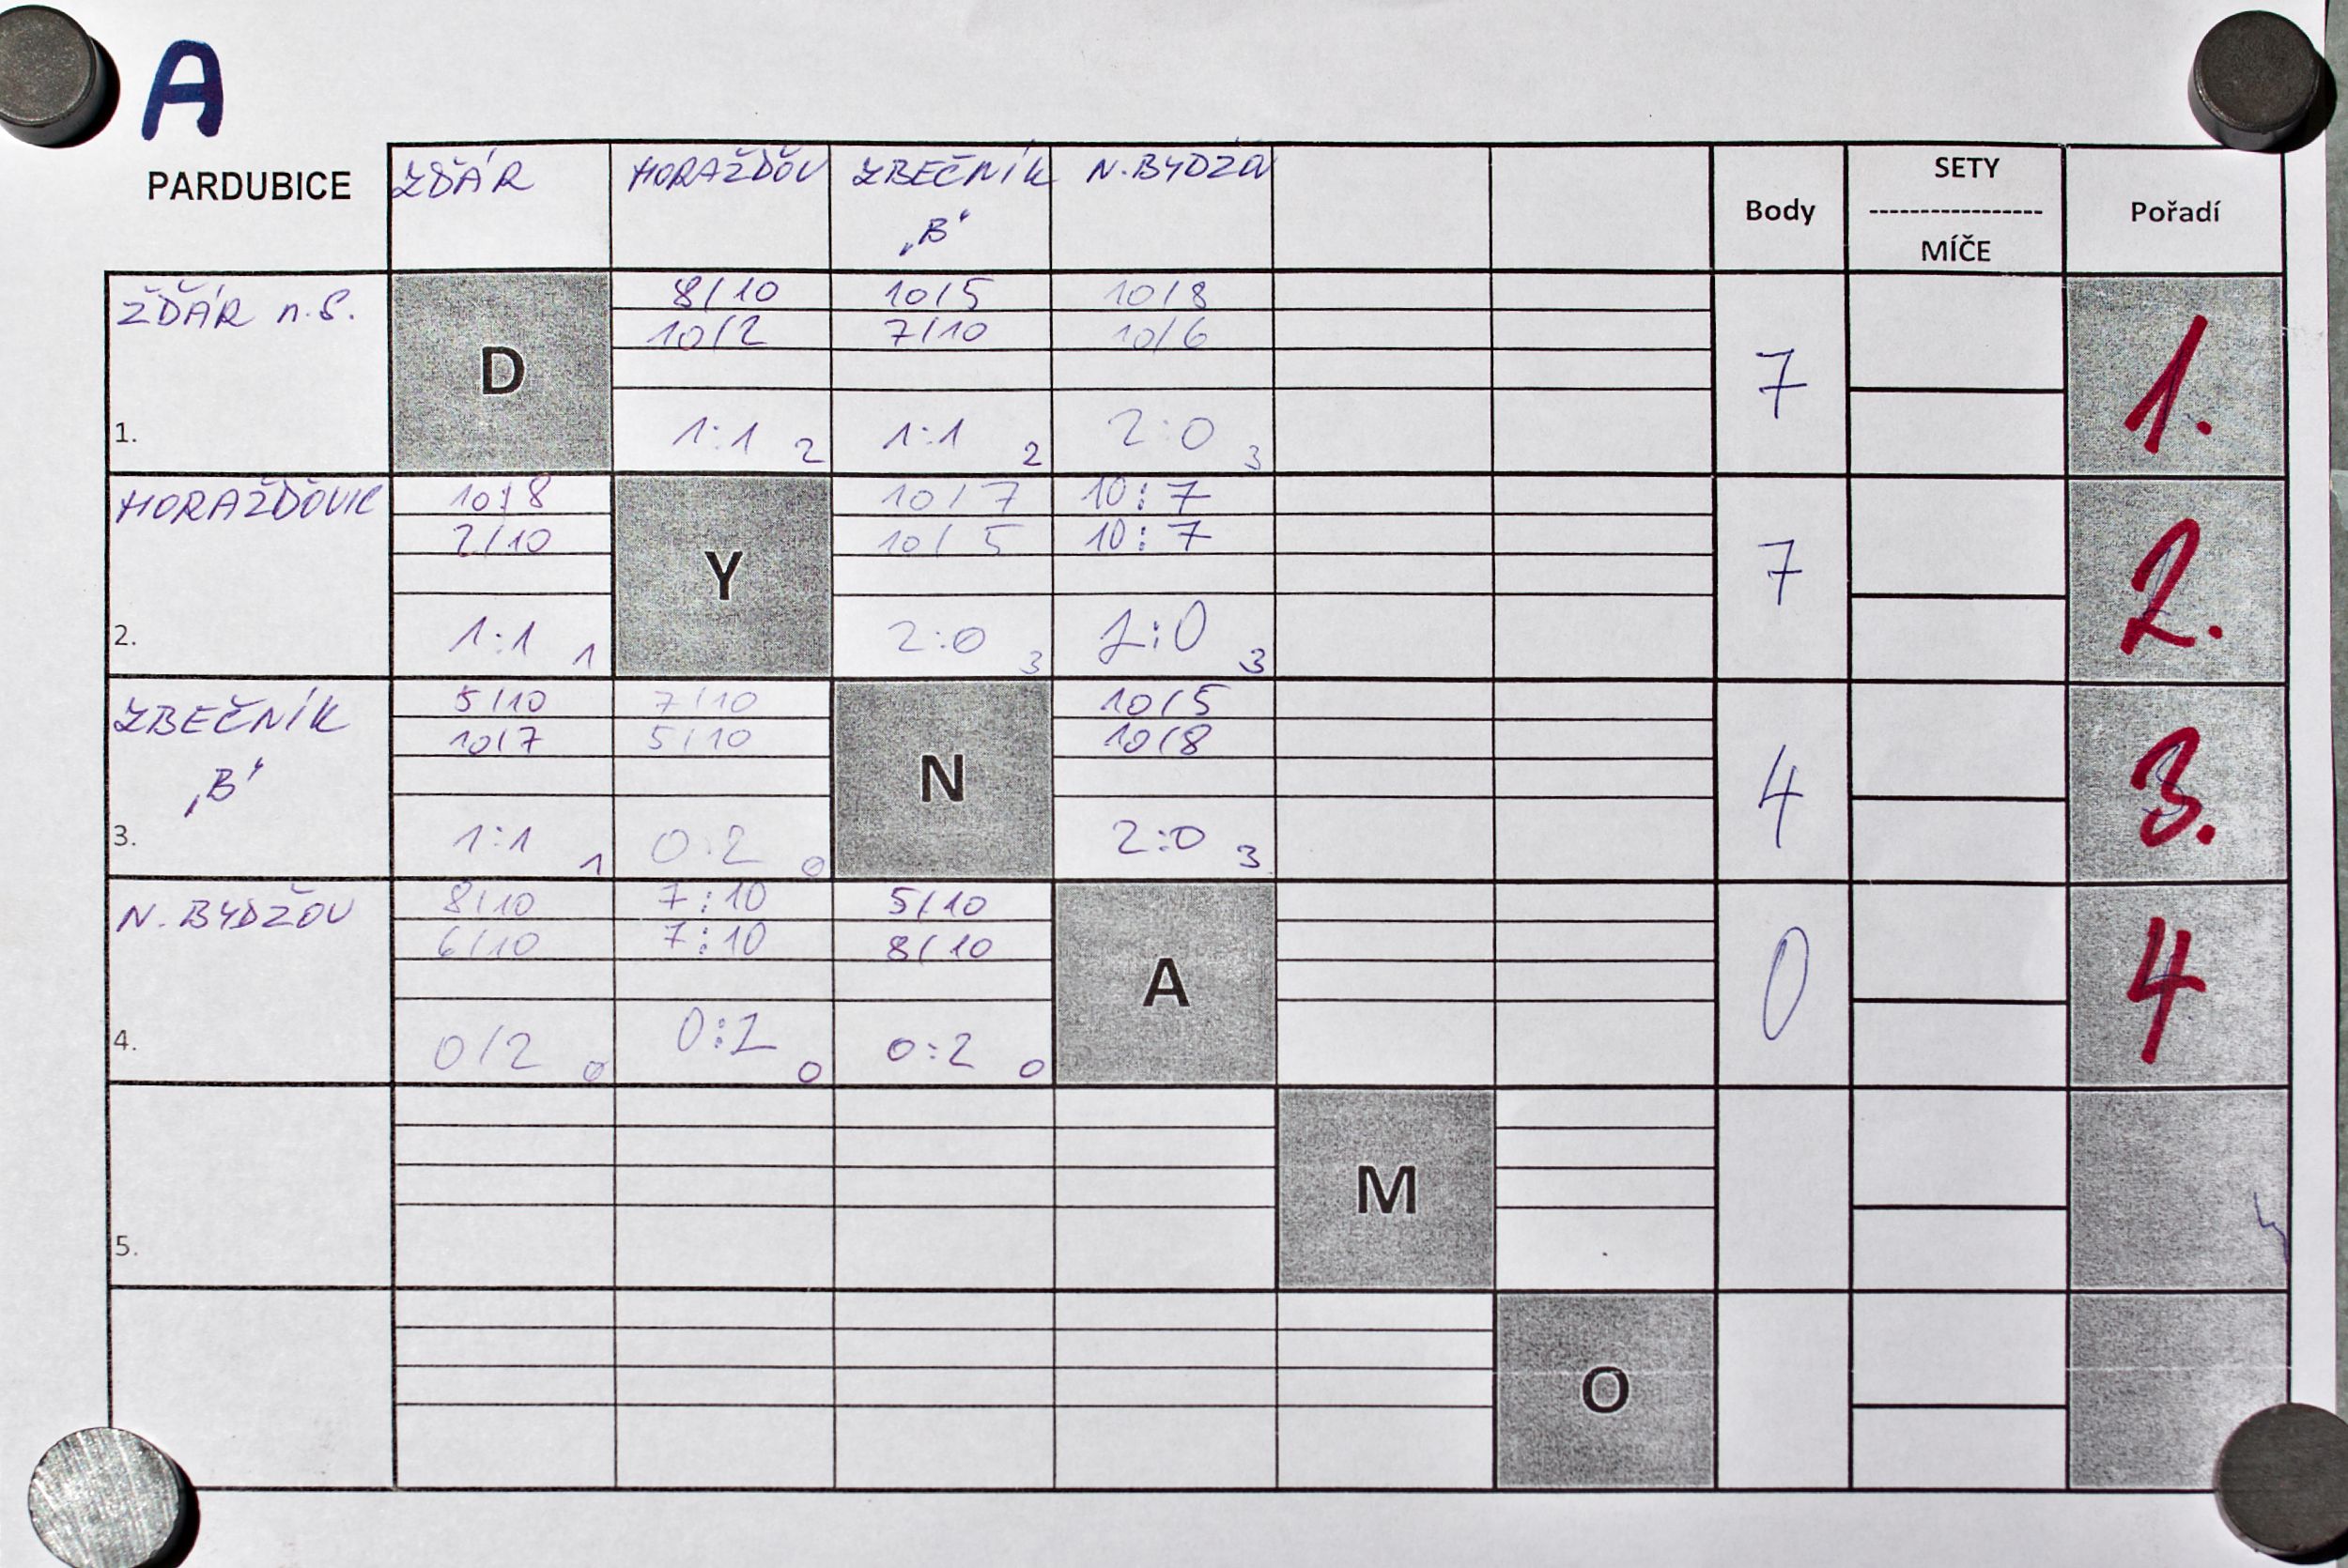 A
PARDUBICE
ŽĎÁR
HORAŽĎOV
ZBEČNÍK
„B“
N.BYDŽOV
Body
SETY
-----------------
MÍČE
Pořadí
ŽĎÁR n.S.
1.
D
8/10
10/2
1:1 2
10/5
7/10
1:1 2
10/8
10/6
2:0 3
7
1.
HORAŽĎOVIC
2.
10:8
2/10
1:1 1
Y
10/7
10/5
2:0 3
10:7
10:7
2:0 3
7
2.
ZBEČNÍK
„B“
3.
5/10
10/7
1:1 1
7/10
5/10
0:2 0
N
10/5
10/8
2:0 3
4
3.
N. BYDŽOV
4.
8/10
6/10
0/2 0
7:10
7:10
0:2 0
5/10
8/10
0:2 0
A
0
4
5.
M
O